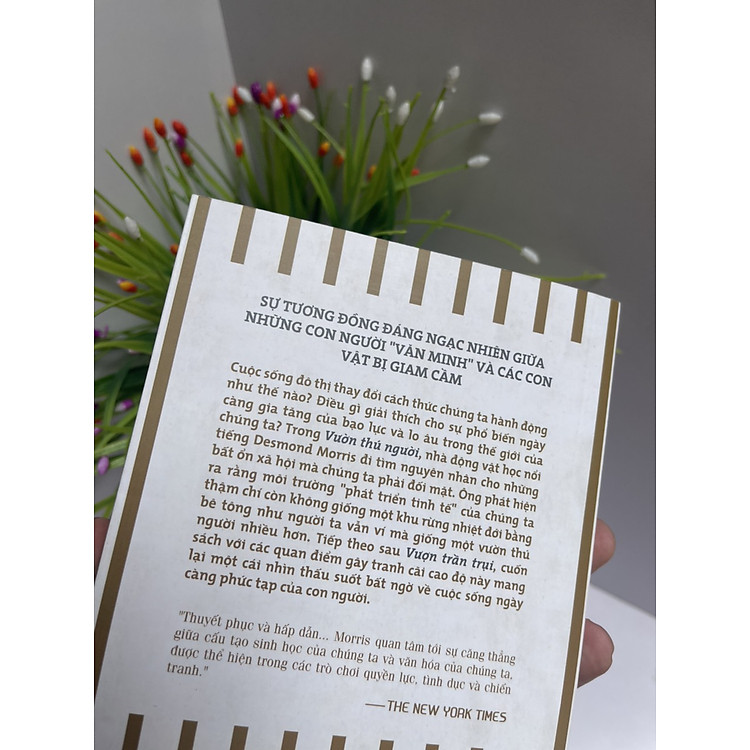 SỰ TƯƠNG ĐỒNG ĐÁNG NGẠC NHIÊN GIỮA
NHỮNG CON NGƯỜI "VĂN MINH" VÀ CÁC CON
VẬT BỊ GIAM CẦM
Cuộc sống đô thị thay đổi cách thức chúng ta hành động
như thế nào? Điều gì giải thích cho sự phổ biến ngày
càng gia tăng của bạo lực và lo âu trong thế giới của
chúng ta? Trong Vườn thú người, nhà động vật học nổi
tiếng Desmond Morris đi tìm nguyên nhân cho những
bất ổn xã hội mà chúng ta phải đối mặt. Ông phát hiện
ra rằng môi trường "phát triển tinh tế" của chúng ta
thậm chí còn không giống một khu rừng nhiệt đới bằng
bê tông như người ta vẫn ví mà giống một vườn thú
người nhiều hơn. Tiếp theo sau Vượn trần trụi, cuốn
sách với các quan điểm gây tranh cãi cao độ này mang
lại một cái nhìn thấu suốt bất ngờ về cuộc sống ngày
càng phức tạp của con người.
"Thuyết phục và hấp dẫn... Morris quan tâm tới sự căng thẳng
giữa cấu tạo sinh học của chúng ta và văn hóa của chúng ta,
được thể hiện trong các trò chơi quyền lực, tình dục và chiến
tranh."
—THE NEW YORK TIMES